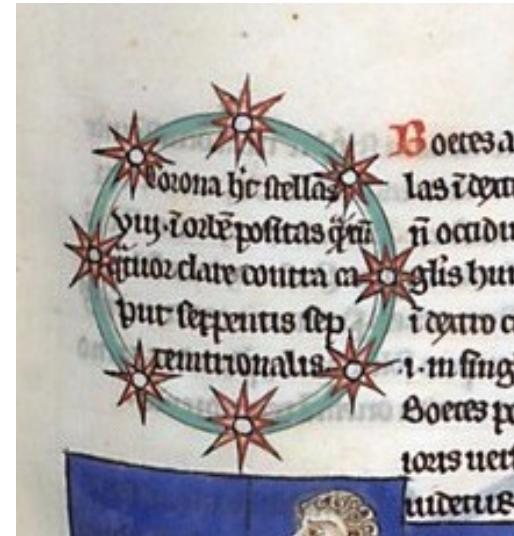 Corona h̄c stellas
viij. ī orbē positas q̄rū
q̄tuor clare contra ca
put serpentis sep
temtrionalis.
Boetes a
las ī dext
n̄ occidu
glis hu
ī dextro c
.i. in sing
Boetes po
ioris uert
uidetus